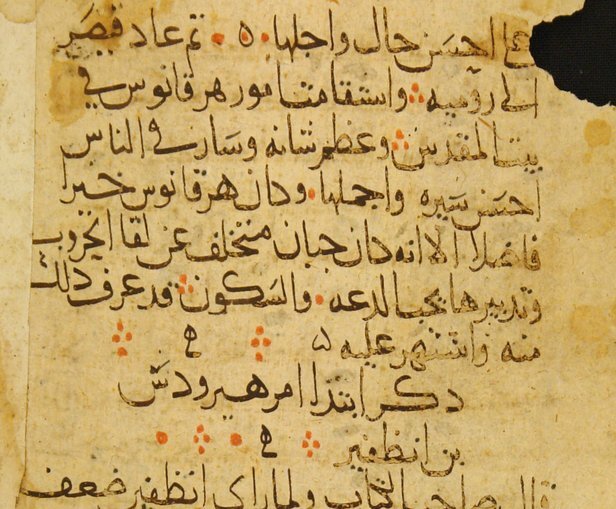 على احسن حال واجلها ٥ ثم عاد قيصر
الى روميه واستقامت امور هرقانوس في
بيت المقدس وعظم شانه وسار في الناس
احسن سيره واجملها وكان هرقانوس خيرا
فاضلا الا انه كان جبان متخلف عن لقا الحروب
وتدبيرها يحب الدعه والسكون قد عرف ذلك
منه واشتهر عليه ٥ ه
ذكر ابتدا امر هيرودس
بن انطفير ه
قال صاحب الكتاب ولما راى انطفير ضعف